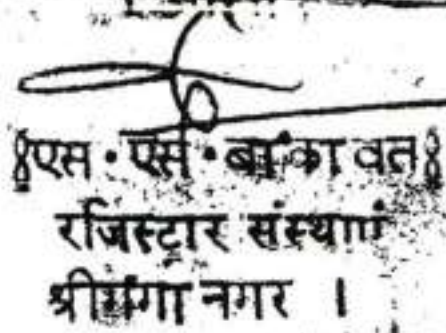 §एस · एस · बांकावत§
रजिस्ट्रार संस्थाएं
श्रीगंगा नगर ।